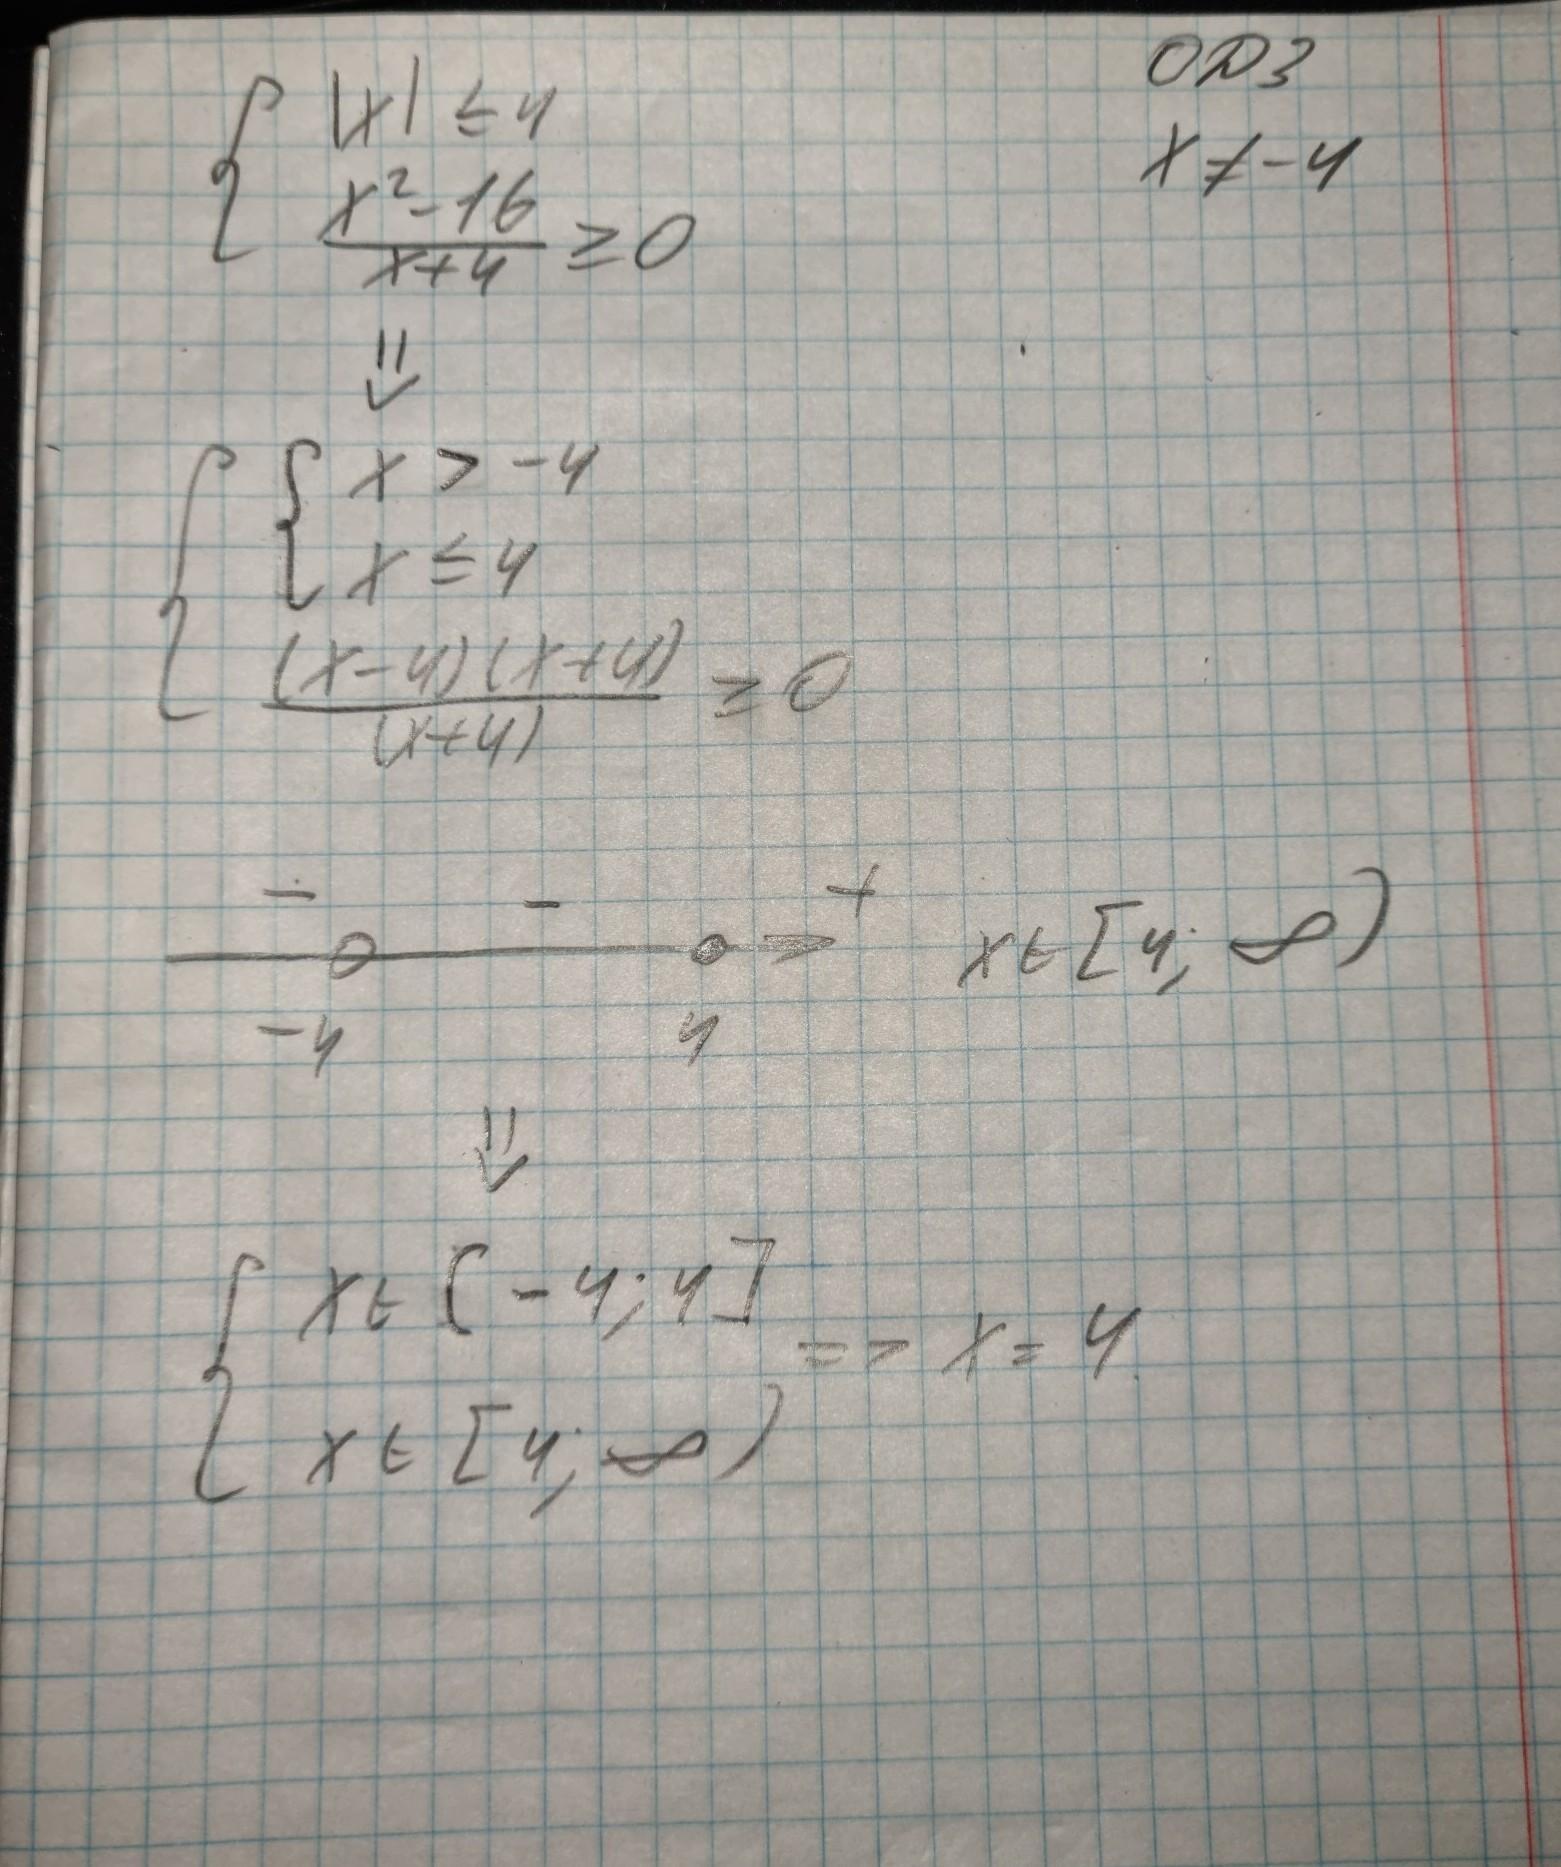 ОДЗ
|x| ≤ 4
x ≠ -4
x² - 16
x + 4
≥ 0
⇓
x > -4
x ≤ 4
(x - 4)(x + 4)
(x + 4)
≥ 0
- - +
x ∈ [4; ∞)
-4 4
⇓
x ∈ [-4; 4]
=> x = 4
x ∈ [4; ∞)